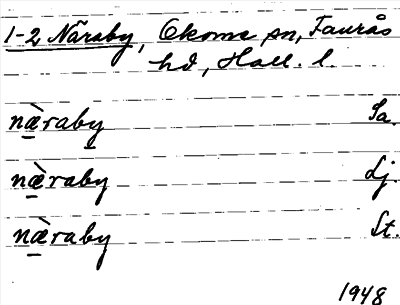 1-2 Näraby, Okome sn, Faurås
hd, Hall. l.
næ̀raby Sa.
næ̀raby Lj.
næ̀raby St.
1948